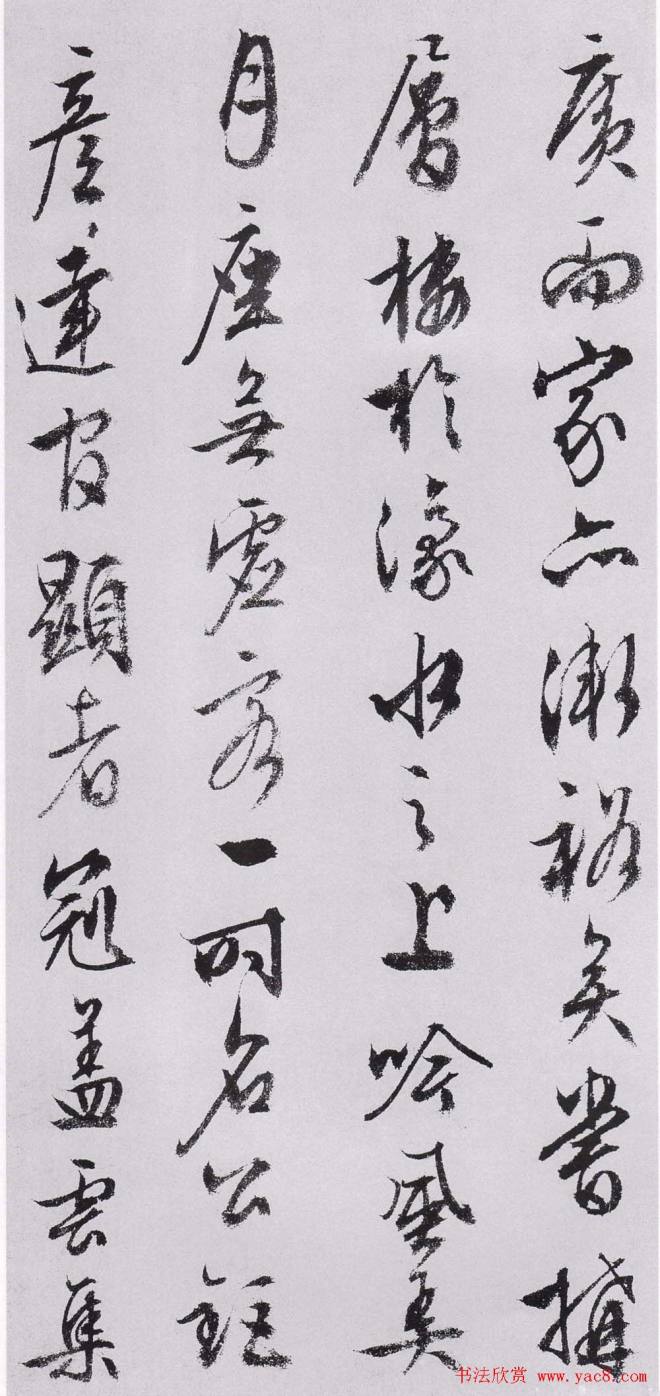 廣而家亦漸裕矣嘗搆
層樓於濠水之上吟風弄
月座無虛客一時名公鉅
彦達官顯者冠蓋雲集
书法欣赏 www.yac8.com